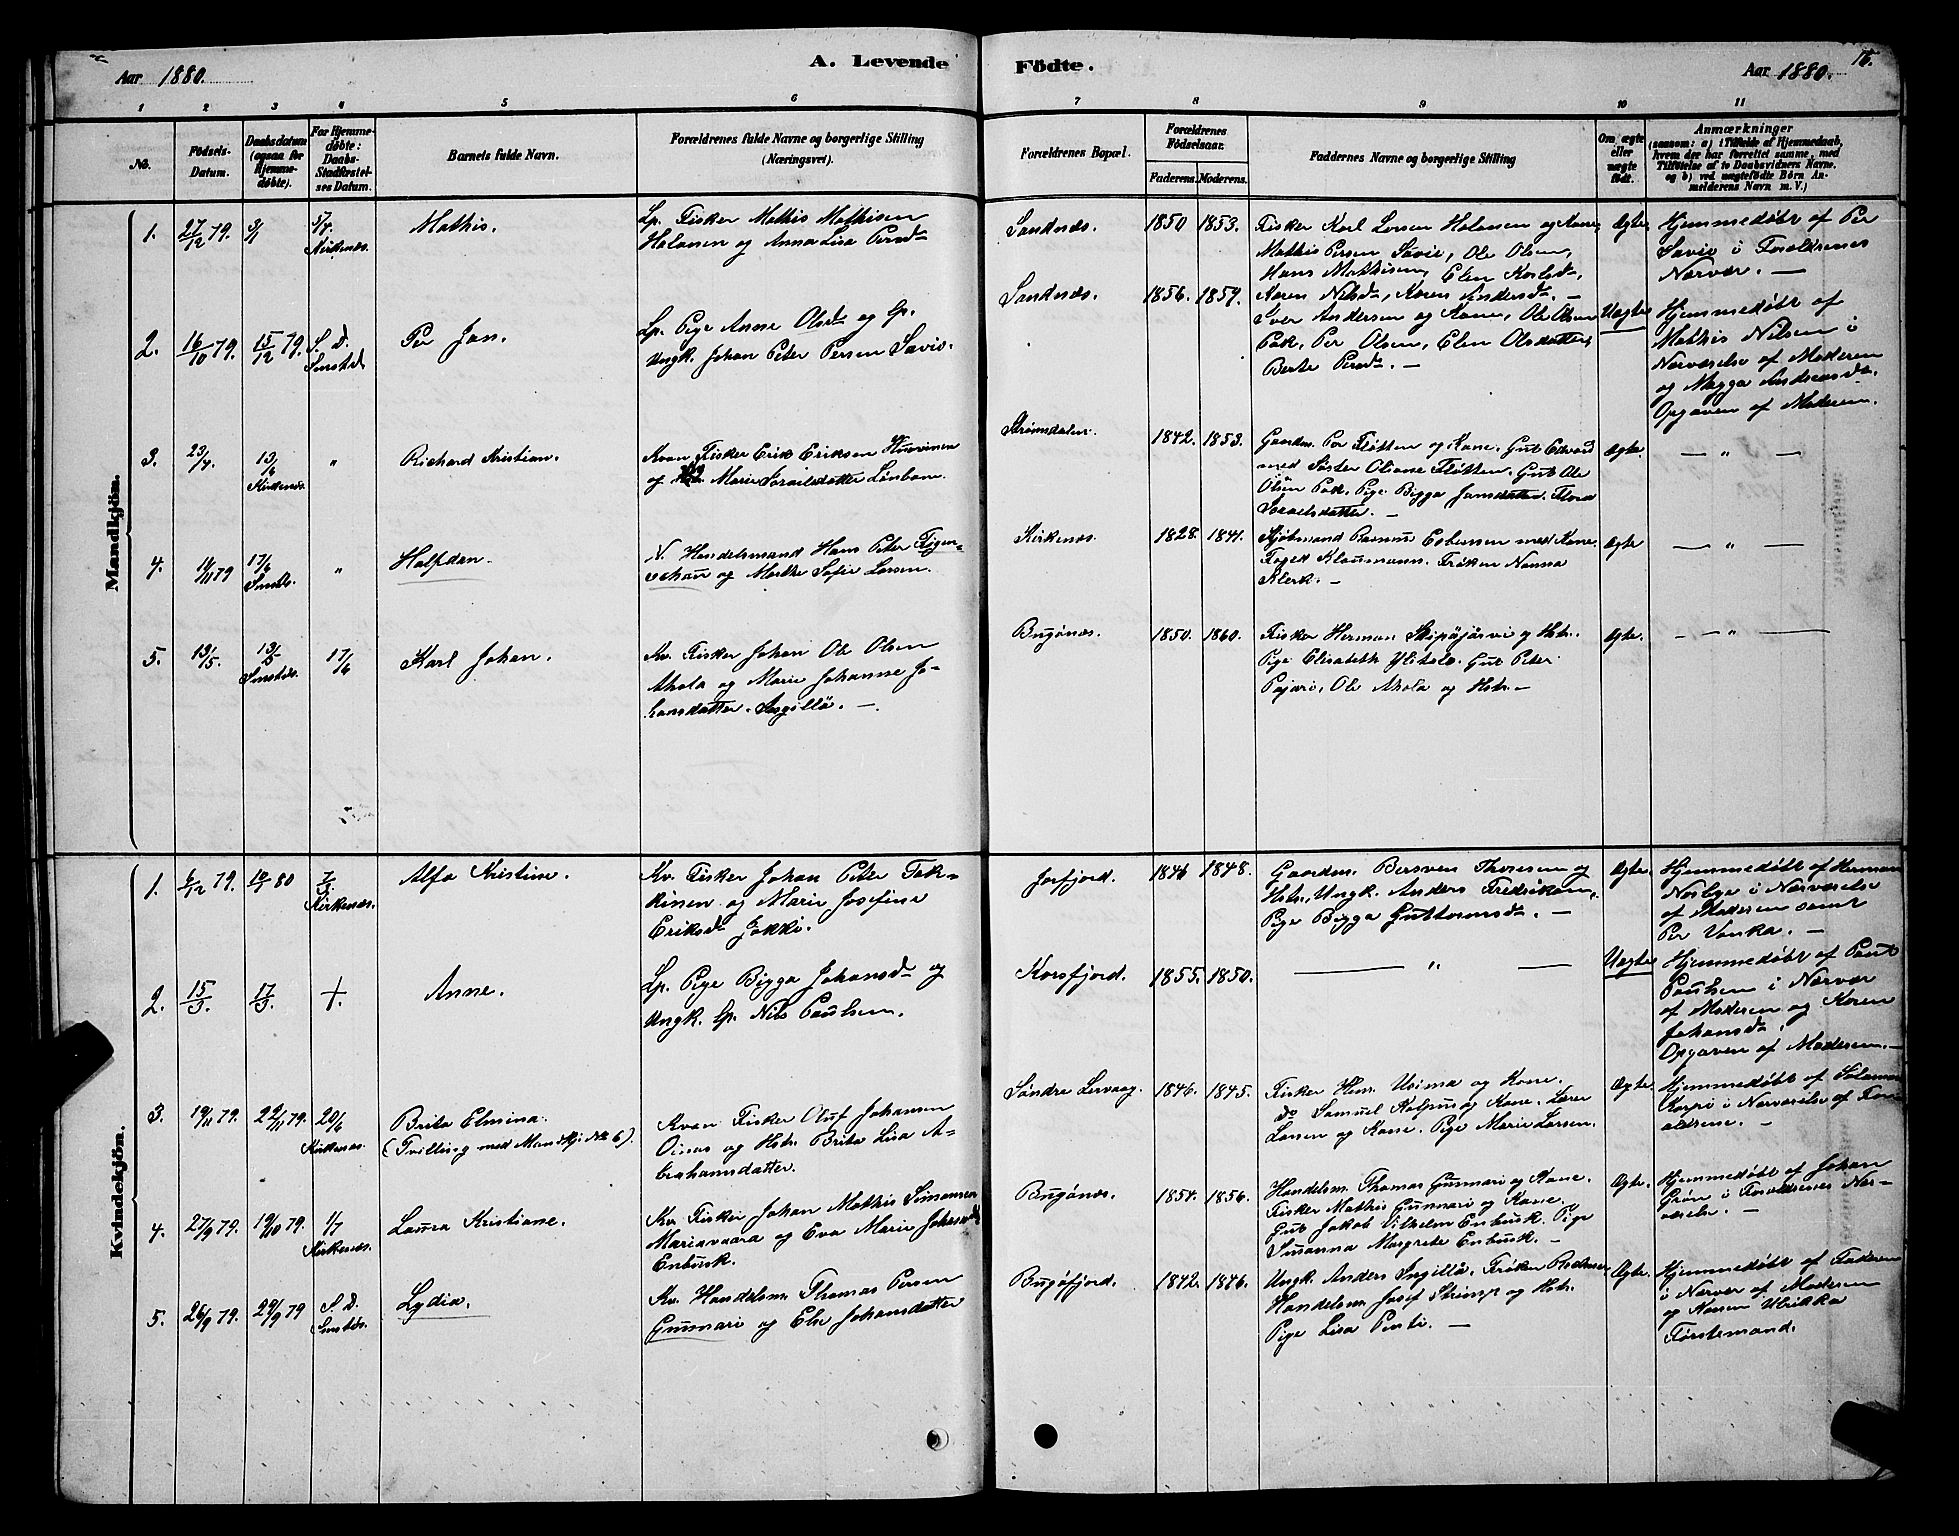 Aar 1880.
A. Levende
Födte.
Aar 1880.
1
2
3
4
5
6
7
8
9
10
11
No.
Födsels-
Datum.
Daabsdatum
(ogsaa for
Hjemme-
døbte).
For Hjemme-
døbte:
Daabs-
Stadfæstel-
ses Datum.
Barnets fulde Navn.
Forældrenes fulde Navne og borgerlige Stilling
(Næringsvei).
Forældrenes Bopæl.
Forældrenes
Födselsaar.
Faderens.
Moderens.
Faddernes Navne og borgerlige Stilling
Om ægte
eller
uægte
født.
Anmærkninger
(saasom: a) i Tilfælde af Hjemmedaab,
hvem der har forrettet samme, med
Tilföielse af to Daabsvidners Navne,
og b) ved uægtefödte Börn An-
melderens Navn m. V.)
Mandkjön.
1.
27/12 79.
3/1
Kirkenæs.
Mathis.
Lp. Fisker Mathis Mathisen
Halonen og Anna Lisa Persd
Sandnæs.
1850
1853.
Fisker Karl Larsen Halonen og Kone,
Mathis Persen Savio, Ole Olsen,
Hans Mathisen, Elen Karlsd,
Karen Nilsd, Karen Andersd. —
Ægte.
Hjemmedøbt af Per
Savio i Forældrenes
Nærvær. —
2.
16/10 79.
15/12 79.
S. D.
Per Jan.
Lp. Pige Anne Olsd og Lp.
Ungk. Johan Peter Persen Savio.
Sandnæs.
1856.
1857.
Iver Andersen og Kone, Ole Olsen
Pak, Per Olsen, Elen Olsdatter,
Berte Persd. —
Uægte
Hjemmedøbt af
Mathis Nilsen i
Nærværelse af Moderen
og Magga Andreasd.
Opgaven af Moderen.
3.
23/4.
13/6
Kirkenæs.
"
Richard Kristian.
Kvan Fisker Erik Eriksen
og Marie Israelsdatter Lønbom.
Strømsdalen.
1842.
1853.
Gaardm. Per Fløtten og Kone. Gut Edvard
med Søster Oliane Fløtten. Gut Ole
Olsen Pak, Pige Bigga Jansdatter. Flora
Israelsdatter. —
Ægte.
— " —
4.
17/6
"
Halfdan.
N. Handelsmand Hans Peter Figen-
schau og Marthe Sofie Larsen.
Kirkenæs.
1828.
1841.
Kjøbmand Rasmus Esbensen med Kone.
Foged Klaumann. Frøken Nanna
Klerk. —
Ægte
— " —
5.
13/5.
17/6
Karl Johan.
Kv. Fisker Johan Ole Olsen
Ahola og Marie Johanne Jo-
hansdatter Angillä. —
Bugönæs.
1850.
1860.
Fisker Herman Skipäjärvi og Hstr.
Pige Elisabeth Ylitalo. Gut Peter
Pajari, Ole Ahola og Hstr. —
Ægte.
— " —
Kvindekjön.
1.
6/12 79.
80
Kirkenæs.
Alfa Kristine.
Kv. Fisker Johan Peter Tak-
kinen og Marie Josefine
Eriksd Jokki.
Jarfjord.
1846
1848.
Gaardm. Bersven Thoresen og
Hstr, Ungk. Anders Fredriksen,
Pige Bigga Guttormsd. —
Ægte.
Hjemmedøbt af Herman
Norbye i Nærværelse
af Moderen samt
Per Vanka. —
2.
15/3.
17/3.
+.
Anne.
Lp. Pige Bigga Johansd og
Ungk. Lp. Nils Paulsen.
Korsfjord.
1855.
1850.
— " —
Uægte
Hjemmedøbt af Paul
Paulsen i Nærvær
af Moderen og Karen
Johansd.
Opgaven af Moderen. —
3.
19/11 79.
22/11 79.
20/6
Kirkenæs.
Brita Elmina.
(Tvilling med Mandkj. No 6).
Kvan Fisker Oluf Johansen
Oinas og Hstr. Brita Lisa A-
brahamsdatter.
Søndre Lervaag.
1846.
1845.
Fisker Hen. Uusima og Kone.
Do Samuel Kolpus og Kone. Lærer
Larsen og Kone. Pige Marie Larsen.
Ægte.
Hjemmedøbt af Salomon
Karpi i Nærværelse af For-
ældrene. —
4.
27/9 79.
19/10 79.
1/7
Kirkenæs.
Laura Kristiane.
Kv. Fisker Johan Mathis Simonsen
Mariavaara og Eva Marie Johansd
Enbusk.
Bugönæs.
1854.
1856.
Handelsm. Thomas Gunnari og Kone.
Fisker Mathis Gunnari og Kone.
Gut Jakob Vilhelm Enbusk. Pige
Susanna Margrete Enbusk. —
Ægte.
Hjemmedøbt af Johan
Grön i Forældrenes Nær-
værelse. —
5.
26/9 79.
29/9 79
S. D.
Lydia.
Kv. Handelsm. Thomas Persen
Gunnari og Else Johansdatter
Bugöfjord.
1842.
1846.
Ungk. Anders Ingillä. Frøken
Handelsm. Josef Strimp og Hstr.
Pige Lisa Penti. —
Ægte.
Hjemmedøbt af Faderen
i Nærvær af Moderen
og Ulrikka
Forstemand.